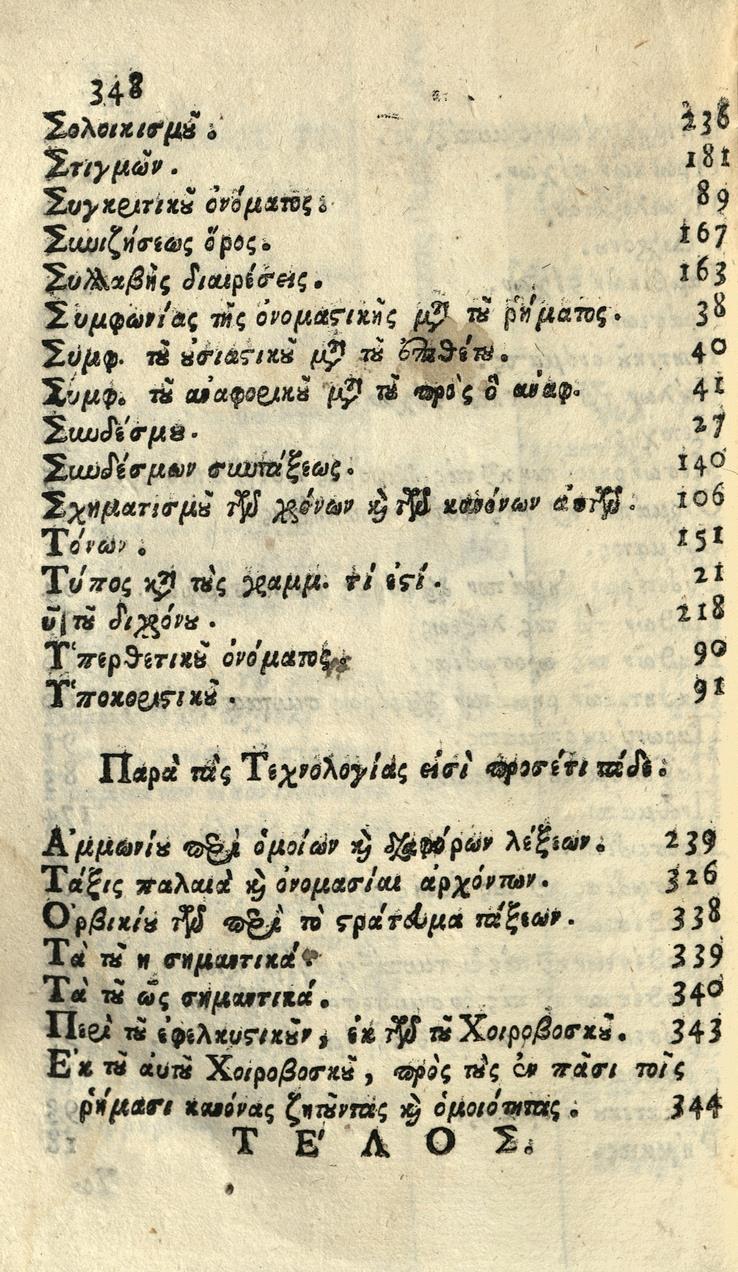 348
Σολοικισμοῦ. 236
Στιγμῶν. 181
Συγκριτικοῦ ὀνόματος. 89
Συνιζήσεως ὅρος. 167
Συλλαβῆς διαιρέσεις. 163
Συμφωνίας τῆς ὀνομαστικῆς μτ̀ τοῦ ῥήματος. 38
Σύμφ. τοῦ οὐσιαστικοῦ μτ̀ τοῦ ἐπιθέτου. 40
Σύμφ. τοῦ ἀναφορικοῦ μτ̀ τοῦ πρὸς ὃ ἀναφ. 41
Συνδέσμου. 27
Συνδέσμων συντάξεως. 140
Σχηματισμοῦ τῶν χρόνων καὶ τῶν κανόνων αὐτῶν. 106
Τόνων. 151
Τύπος κτ̀ τοὺς γραμμ. τί ἐστί. 21
ῦ τοῦ διχρόνου. 218
Ὑπερθετικοῦ ὀνόματος. 90
Ὑποκοριστικοῦ. 91
Παρὰ τὰς Τεχνολογίας εἰσὶ προσέτι τάδε.
Ἀμμωνίου περὶ ὁμοίων καὶ διαφόρων λέξεων. 239
Τάξις παλαιὰ καὶ ὀνομασίαι ἀρχόντων. 326
Ὀρβικίου τῶν περὶ τὸ στράτευμα τάξεων. 338
Τὰ τοῦ η σημαντικά. 339
Τὰ τοῦ ὡς σημαντικά. 340
Περὶ τοῦ ἐφελκυστικοῦν, ἐκ τῶν τοῦ Χοιροβοσκοῦ. 343
Ἐκ τοῦ αὐτοῦ Χοιροβοσκοῦ, πρὸς τοὺς ἐν πᾶσι τοῖς
ῥήμασι κανόνας ζητοῦντας καὶ ὁμοιότητας. 344
ΤΕ'ΛΟΣ.